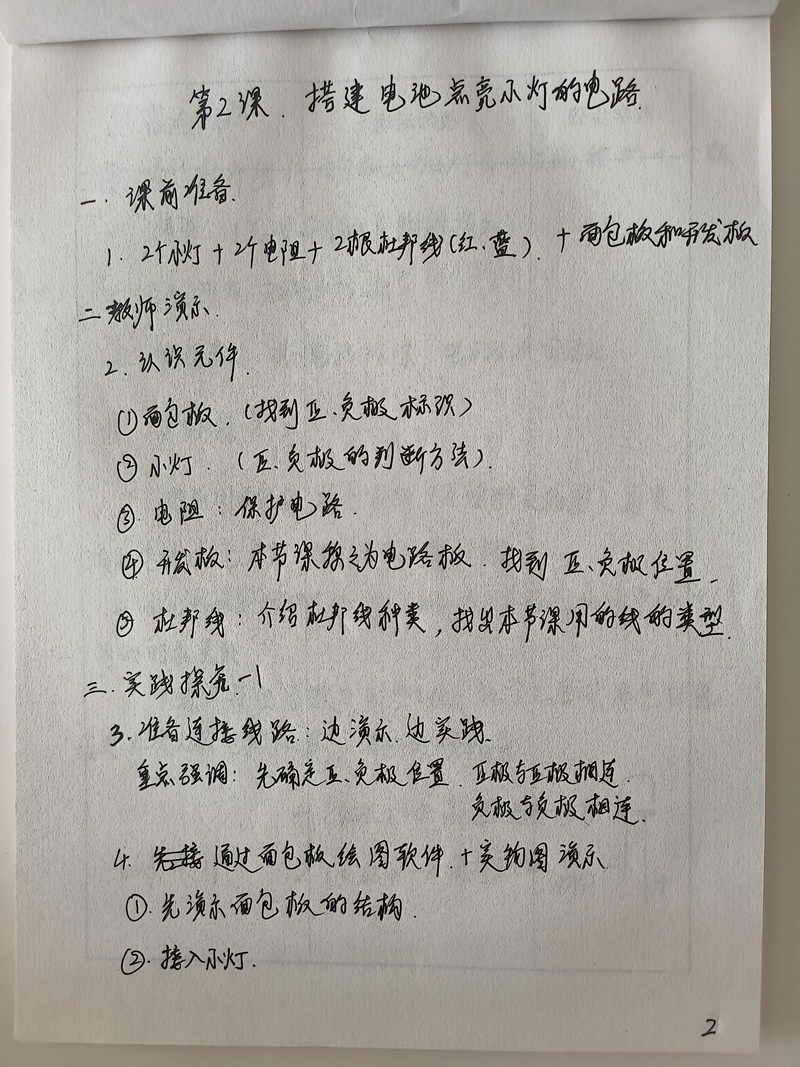 第2课. 搭建电池点亮小灯的电路.
一. 课前准备.
1. 2个小灯+2个电阻+2根杜邦线(红、蓝). +面包板和开发板
二教师演示.
2. 认识元件.
①面包板. (找到正、负极标识)
② 小灯. (正、负极的判断方法).
③. 电阻: 保护电路.
④ 开发板: 本节课称之为电路板. 找到正、负极位置.
⑤ 杜邦线: 介绍杜邦线种类, 找出本节课用的线的类型.
三. 实践探究-1
3. 准备连接线路: 边演示. 边实践.
重点强调: 先确定正、负极位置. 正极与正极相连.
负极与负极相连.
4. 通过面包板绘图软件. +实物图演示
①. 先演示面包板的结构.
②. 接入小灯.
2